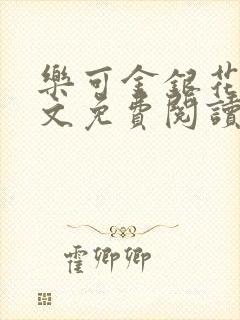 樂可金銀花
文免費閱讀
霍卿卿